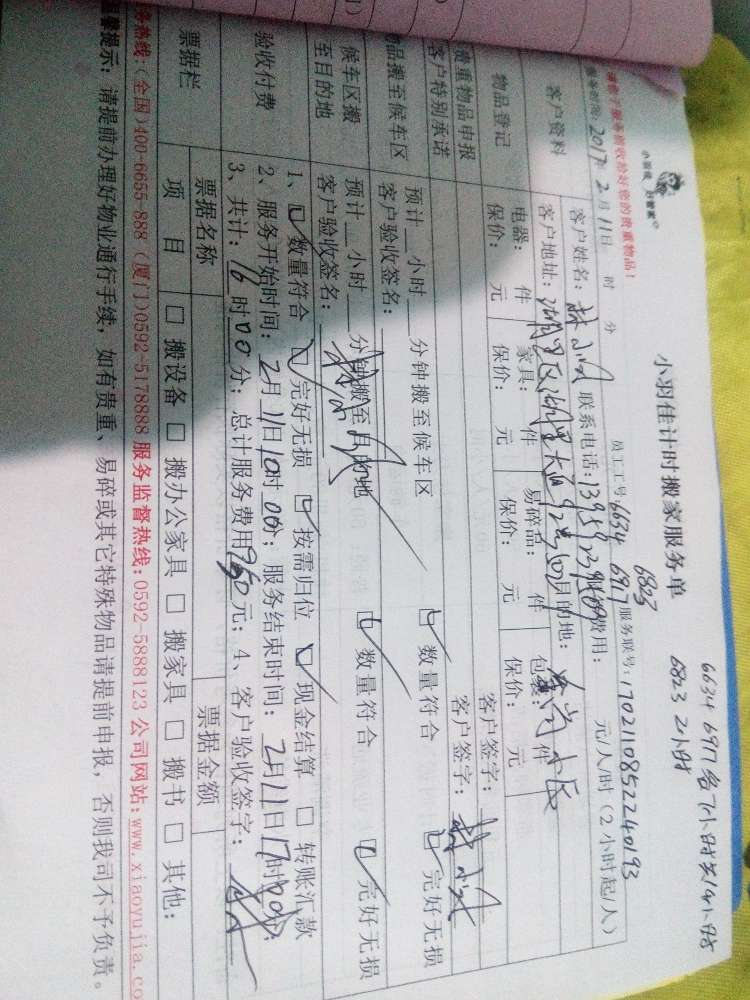 6634 6917各7小时共14小时
6823 2小时
小羽佳 好管家
小羽佳计时搬家服务单
6823
请您于服务前收拾好您的贵重物品!
服务时间: 2017年2月11日 时 分
员工工号: 6634 6917
服务联号: 1702110852240193
客户资料
客户姓名:
联系电话:
费用: 元/人/时(2小时起/人)
客户地址:
目的地:
物品登记
电器: 件
家具: 件
易碎品: 件
包裹: 件
保价: 元
保价: 元
保价: 元
保价: 元
贵重物品申报
客户签字:
客户特别承诺
客户签字:
物品搬至候车区
预计 小时 分钟搬至候车区
数量符合
完好无损
客户验收签名:
候车区搬至目的地
预计 小时 分钟搬至目的地
数量符合
完好无损
客户验收签名:
验收付费
1、 数量符合 完好无损 按需归位 现金结算 转账汇款
2、服务开始时间: 2月11日10时00分; 服务结束时间: 2月11日17时00分;
3、共计: 16时00分; 总计服务费用 元; 4、客户验收签字:
票据栏
票据名称
票据金额
项 目
搬设备 搬办公家具 搬家具 搬书 其他:
服务热线:(全国)400-6655-888(厦门)0592-5178888 服务监督热线:0592-5888123 公司网站:www.xiaoyujia.co
温馨提示: 请提前办理好物业通行手续, 如有贵重、易碎或其它特殊物品请提前申报, 否则我司不予负责。